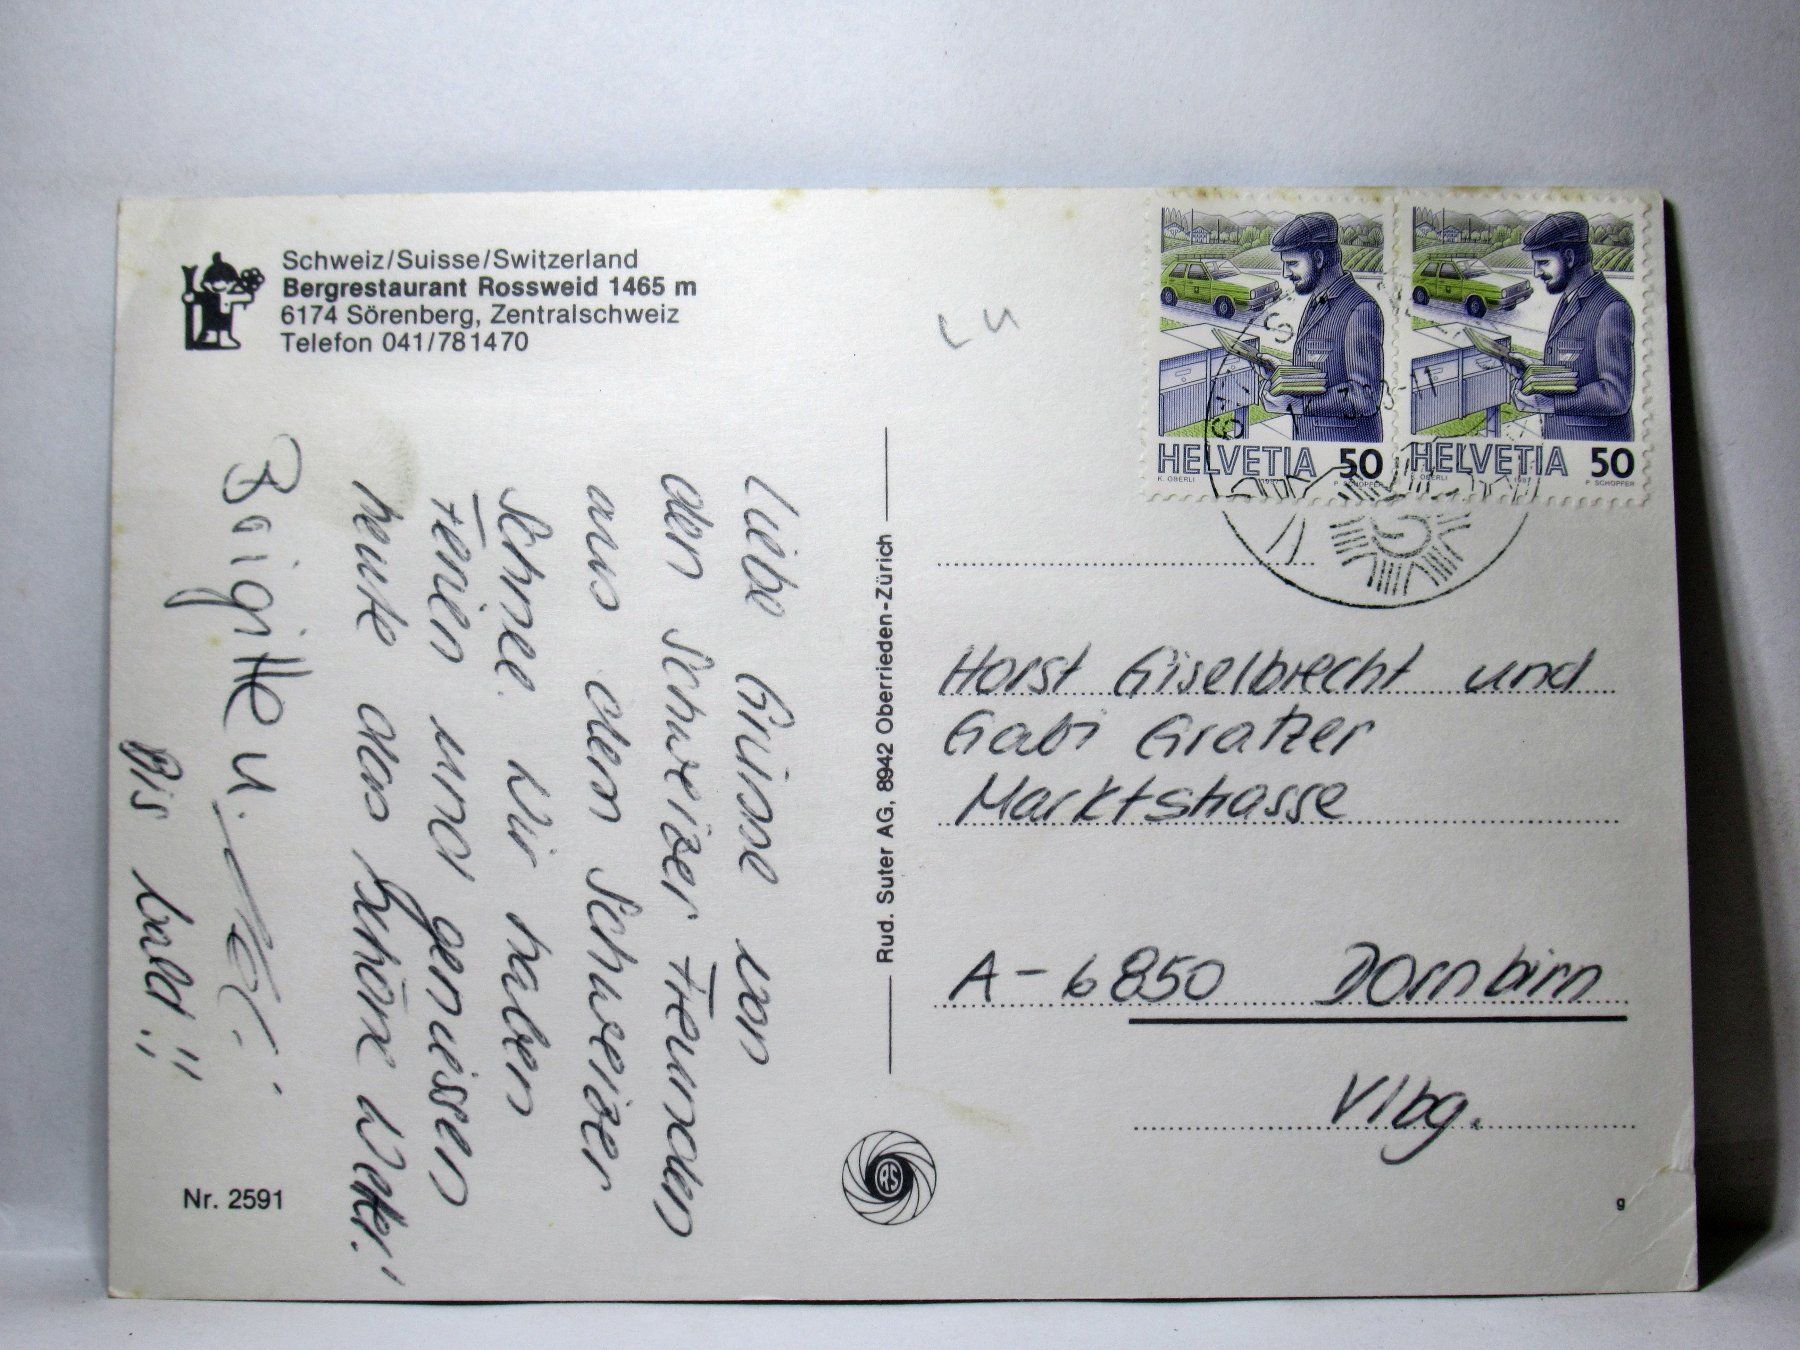 Schweiz/Suisse/Switzerland
Bergrestaurant Rossweid 1465 m
6174 Sörenberg, Zentralschweiz
Telefon 041/781470
Liebe Grüsse von
den Schweizer Freunden
aus dem Schweizer
Schnee. Wir haben
Ferien und geniessen
heute das schöne Wetter!
Brigitte u.
Bis bald!!
Nr. 2591
Rud. Suter AG, 8942 Oberrieden-Zürich
RS
LU
HELVETIA 50
K. OBERLI P. SCHOPFER
HELVETIA 50
K. OBERLI 1987 P. SCHOPFER
Horst Giselbrecht und
Gabi Gratzer
Marktstrasse
A-6850 Dornbirn
Vlbg.
g